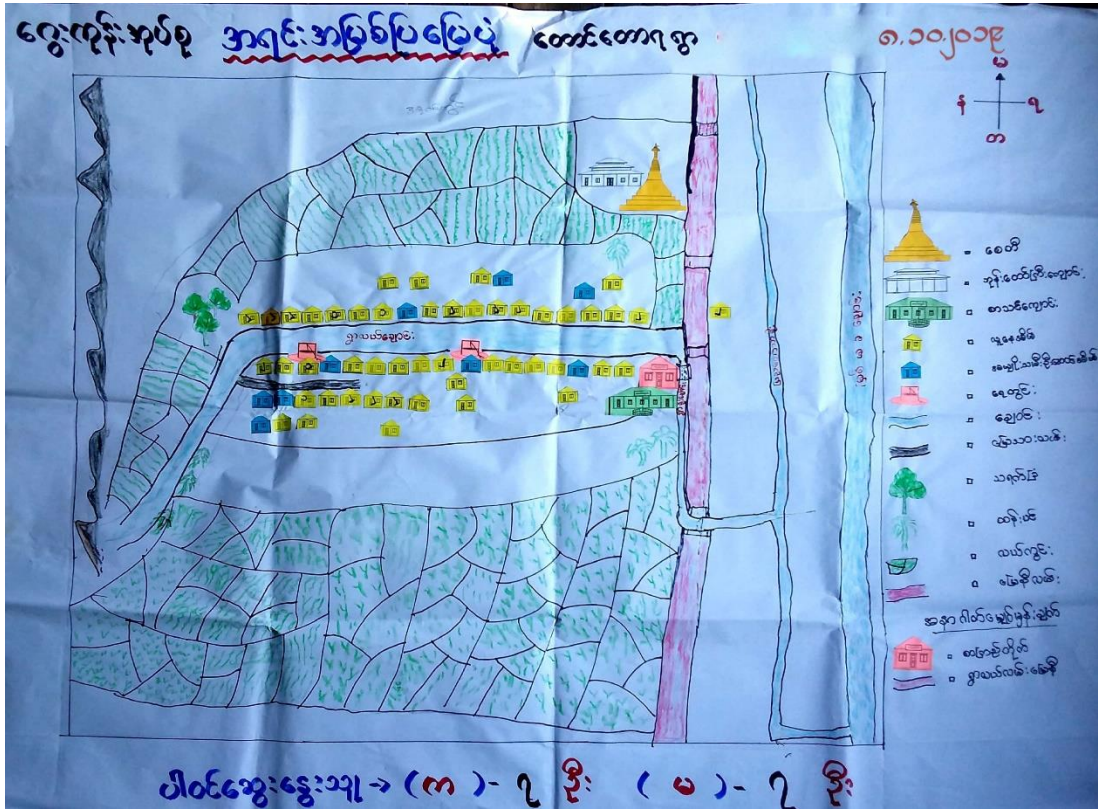 ဂွေးကုန်းအုပ်စု အရင်းအမြစ်ပြမြေပုံ တောင်တောရွာ ၈.၁၀.၂၀၁၉
မ
န ရ
တ
ရွာလယ်ချောင်း
စေတီ
ဘုန်းတော်ကြီးကျောင်း
စာသင်ကျောင်း
လူနေအိမ်
အမျိုးသမီးဦးဆောင်အိမ်
ရေတွင်း
ချောင်း
မြေသားလမ်း
သရက်ခြံ
ထန်းပင်
လယ်ကွင်း
မြေနီလမ်း
အနာဂါတ်မျှော်မှန်းချက်
စာကြည့်တိုက်
ရွာလယ်လမ်းမြေနီ
ပါဝင်ဆွေးနွေးသူ → (က) - ၇ ဦး (မ) - ၇ ဦး